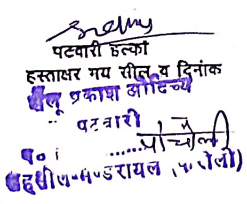 पटवारी हल्का
हस्ताक्षर मय सील व दिनांक
प्रकाश आदित्य
पटवारी
प० ह ...... पांचोली
तहसील-मण्डरायल (करौली)